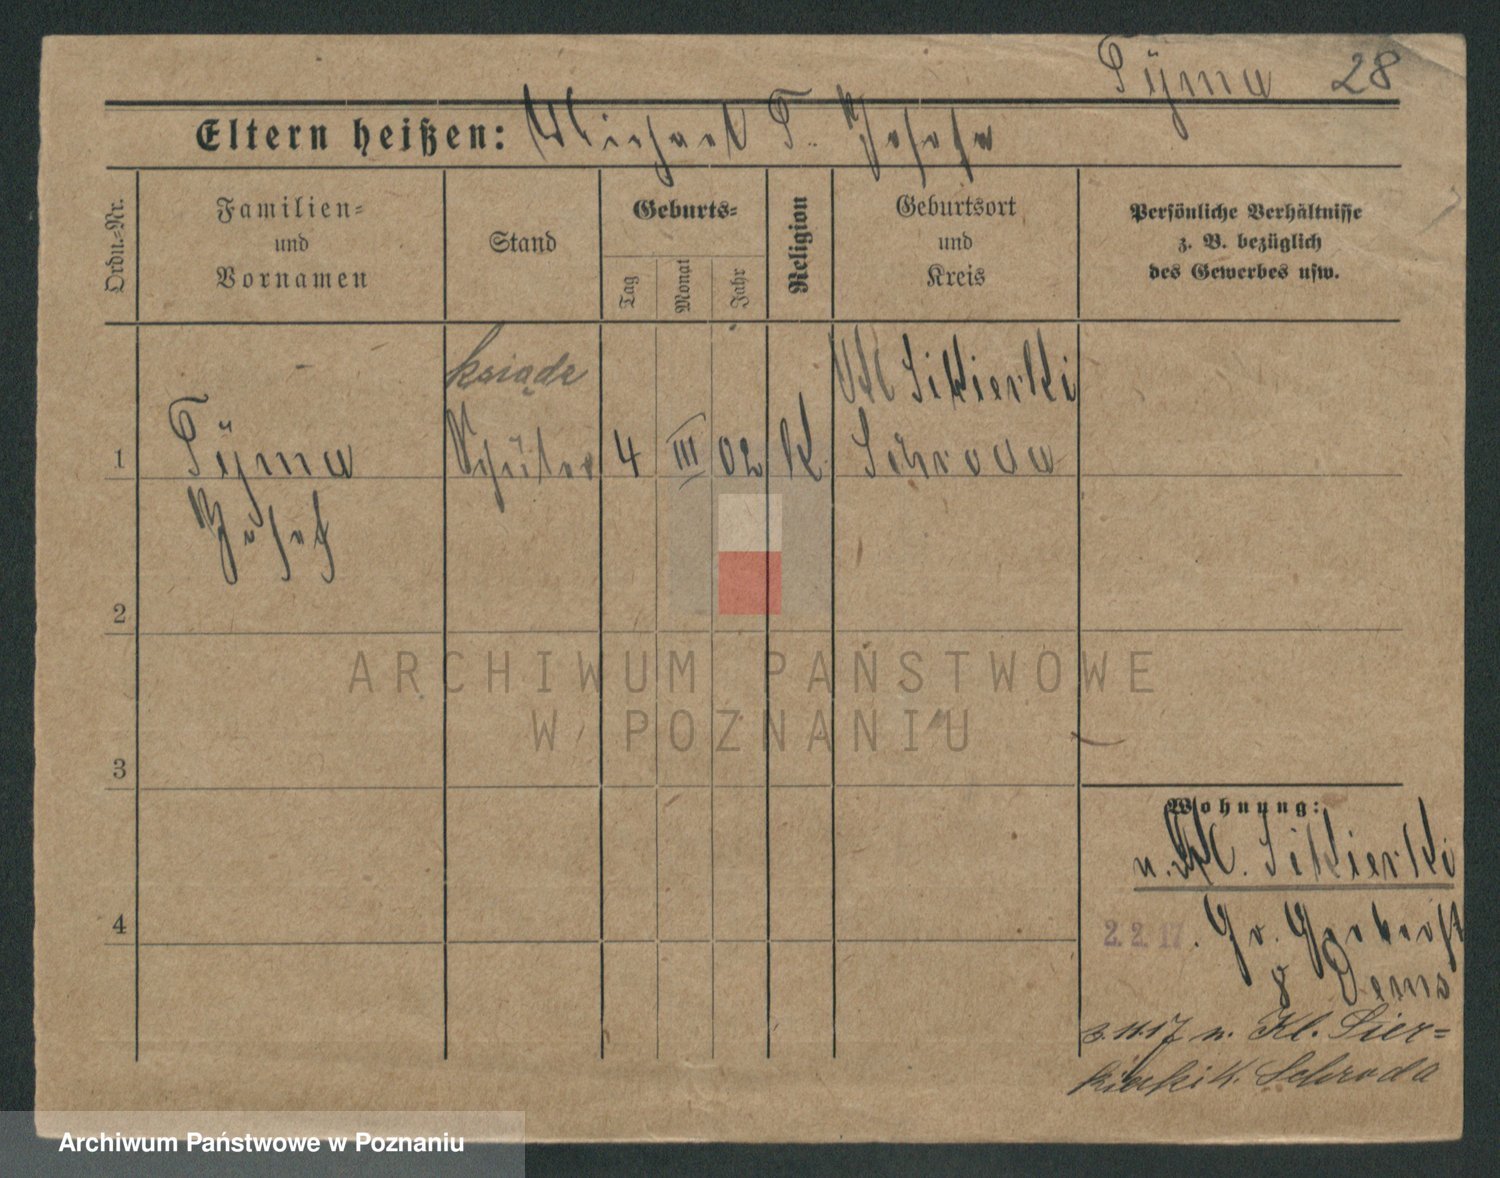 Tÿma 28
Eltern heißen: Michael T. Josefa
Ordn.-Nr.
Familien-
und
Vornamen
Stand
Geburts-
Tag
Monat
Jahr
Religion
Geburtsort
und
Kreis
Persönliche Verhältnisse
z. B. bezüglich
des Gewerbes usw.
ksiądz
Kl. Sikierki
1 Tÿma Schüler 4 III 02 K Schroda
Josef
2
3
4
Wohnung:
n. Kl. Sikierki
2. 2. 17. Gr. Gerberst
8
3.11.17 n. Kl. Sier=
kierki K. Schroda
ARCHIWUM PAŃSTWOWE
W POZNANIU
Archiwum Państwowe w Poznaniu